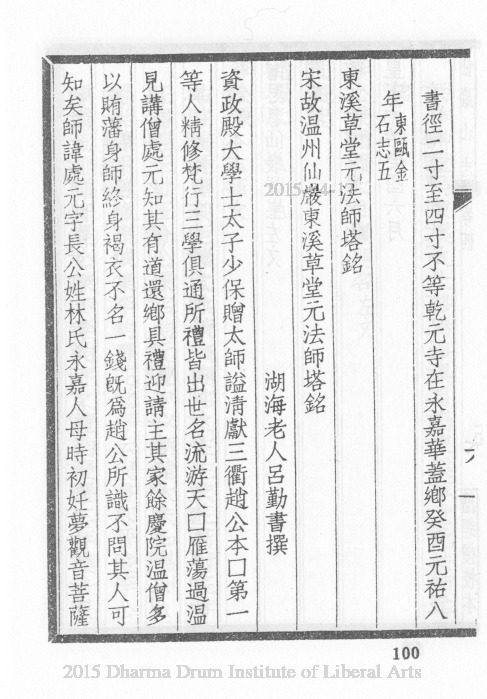 書徑二寸至四寸不等乾元寺在永嘉華蓋鄉癸酉元祐八
年東甌金
石志五
東溪草堂元法師塔銘
宋故温州仙巖東溪草堂元法師塔銘
湖海老人呂勤書撰
資政殿大學士太子少保贈太師謚清獻三衢趙公本口第一
等人精修梵行三學俱通所禮皆出世名流游天口雁蕩過温
見講僧處元知其有道還鄉具禮迎請主其家餘慶院温僧多
以賄藩身師終身褐衣不名一錢旣爲趙公所識不問其人可
知矣師諱處元字長公姓林氏永嘉人母時初妊夢觀音菩薩
100
2015 Dharma Drum Institute of Liberal Arts